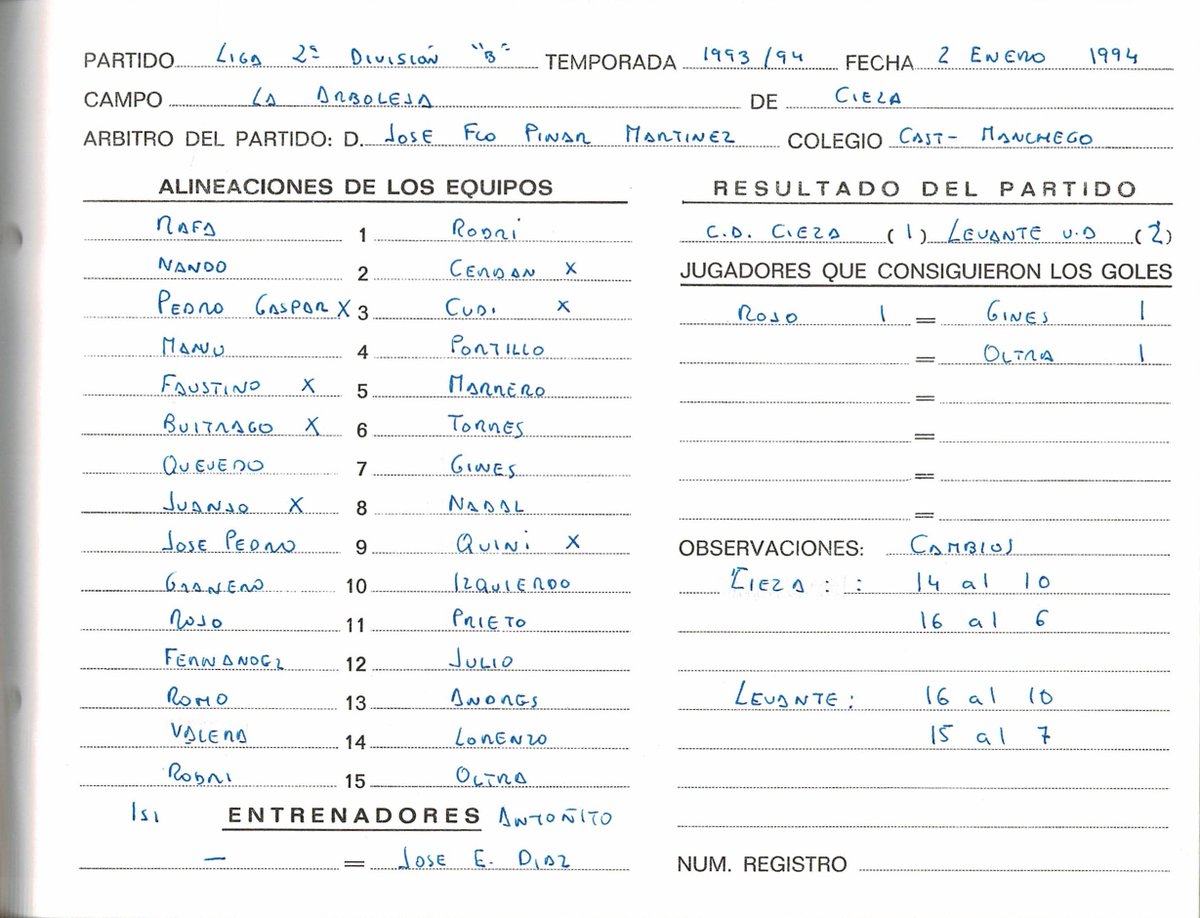 PARTIDO LIGA 2ª DIVISIÓN "B" TEMPORADA 1993/94 FECHA 2 ENERO 1994
CAMPO LA ARBOLEJA DE CIEZA
ARBITRO DEL PARTIDO: D. JOSE FCO PINAR MARTINEZ COLEGIO CAST- MANCHEGO
ALINEACIONES DE LOS EQUIPOS
RAFA 1 RODRI
NANDO 2 CERDAN X
PEDRO GASPAR X 3 CUDI X
MANU 4 PORTILLO
FAUSTINO X 5 MARRERO
BUITRAGO X 6 TORRES
QUEJEDO 7 GINES
JUANJO X 8 NADAL
JOSE PEDRO 9 QUINI X
GRANERO 10 IZQUIERDO
ROJO 11 PRIETO
FERNANDEZ 12 JULIO
ROMO 13 ANDRES
VALERA 14 LORENZO
RODRI 15 OLTRA
ISI ENTRENADORES ANTOÑITO
— = JOSE E. DIAZ
RESULTADO DEL PARTIDO
C.D. CIEZA (1) LEVANTE U.D (2)
JUGADORES QUE CONSIGUIERON LOS GOLES
ROJO 1 = GINES 1
= OLTRA 1
=
=
=
=
OBSERVACIONES: CAMBIOS
CIEZA : : 14 al 10
16 al 6
LEVANTE: 16 al 10
15 al 7
NUM. REGISTRO